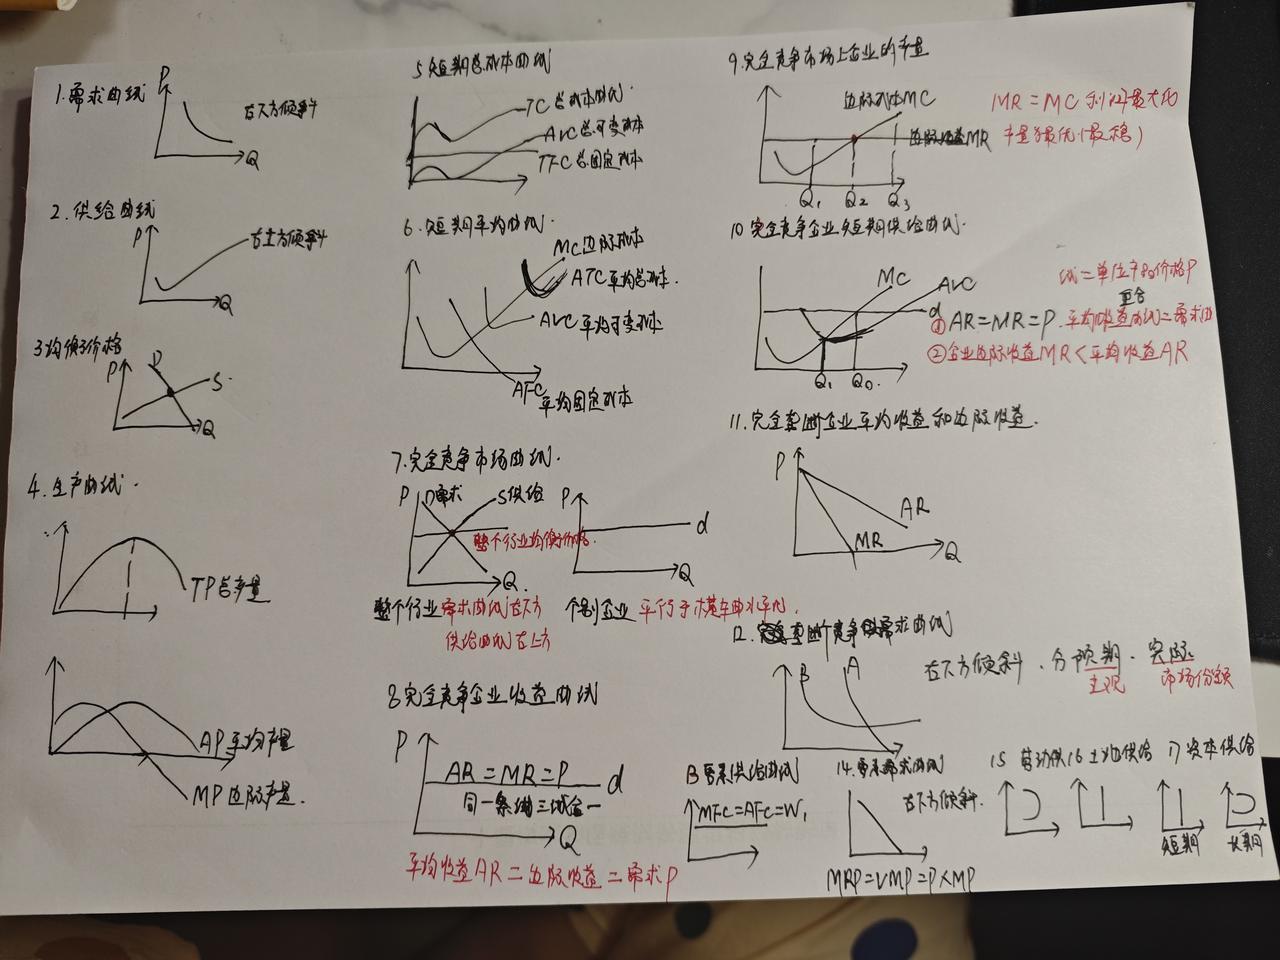 1.需求曲线
P
右下方倾斜
Q
2.供给曲线
P
右上方倾斜
Q
3均衡价格
P
D
S
Q
4.生产曲线.
TP总产量
AP平均产量
MP边际产量.
5短期总成本曲线
TC总成本曲线.
AVC总可变成本
TFC总固定成本
6.短期平均曲线.
MC边际成本
ATC平均总成本.
AVC平均可变成本
AFC
平均固定成本
7.完全竞争市场曲线.
P
D需求
S供给
整个行业均衡价格.
Q
P
d
Q
整个行业 需求曲线右下方
供给曲线右上方
个别企业 平行于横轴的水平线.
8完全竞争企业收益曲线
P
AR=MR=P
d
同一条线三线合一
Q
平均收益AR=边际收益=需求P
9.完全竞争市场上企业的产量
边际成本MC
边际收益MR
Q1
Q2
Q3
MR=MC 利润最大化
产量为最优(最稳)
10完全竞争企业短期供给曲线.
MC
AVC
d
Q1
Q0.
线=单位产品价格P
重合
①AR=MR=P.平均收益曲线=需求曲
②企业边际收益MR<平均收益AR
11.完全垄断企业平均收益和边际收益.
P
AR
MR
Q
12.垄断竞争需求曲线
B
A
右下方倾斜.分预期.实际
主观
市场份额
13要素供给曲线
MFC=AFC=W,
14.要素需求曲线
右下方倾斜.
MRP=VMP=P×MP
15 劳动供
16土地供给
17资本供给
短期
长期